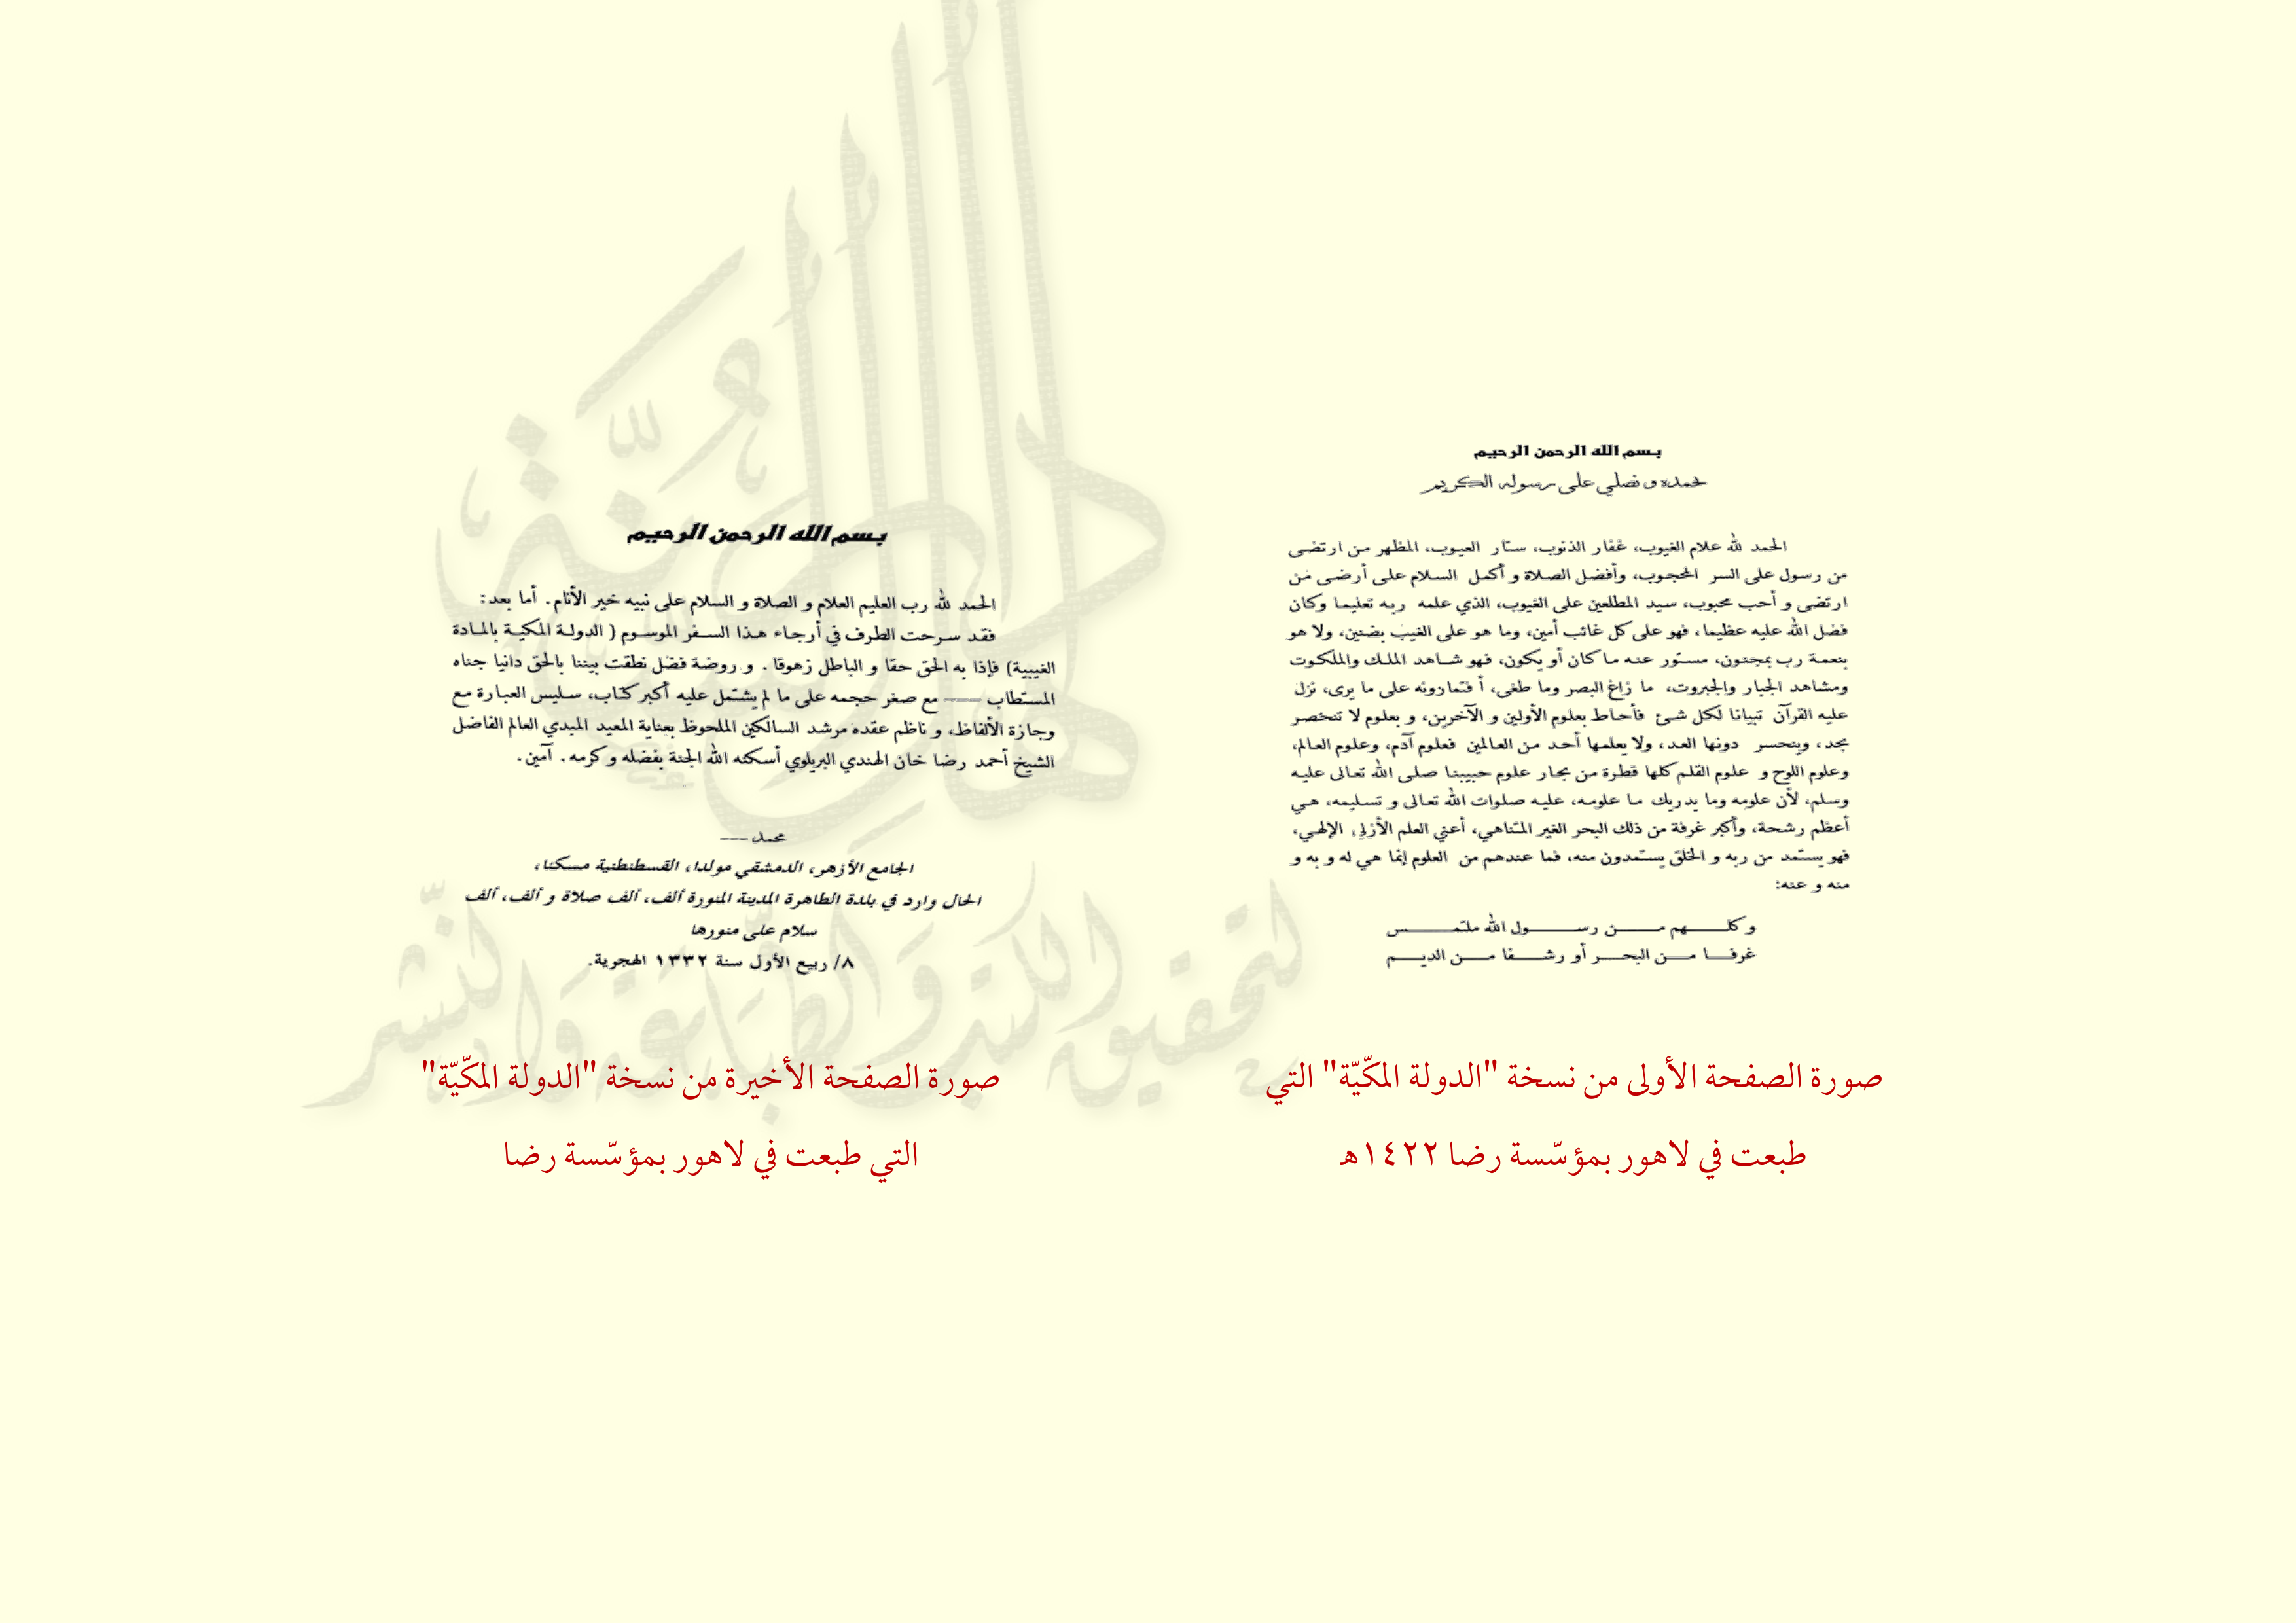 بسم الله الرحمن الرحيم
نحمده و نصلي على رسوله الكريم
الحمد لله علام الغيوب، غفار الذنوب، ستار العيوب، المظهر من ارتضى
من رسول على السر المحجوب، وأفضل الصلاة و أكمل السلام على أرضى من
ارتضى و أحب محبوب، سيد المطلعين على الغيوب، الذي علمه ربه تعليما وكان
فضل الله عليه عظيما، فهو على كل غائب أمين، وما هو على الغيب بضنين، ولا هو
بنعمة رب بمجنون، مستور عنه ما كان أو يكون، فهو شاهد الملك والملكوت
ومشاهد الجبار والجبروت، ما زاغ البصر وما طغى، أ فتمارونه على ما يرى، نزل
عليه القرآن تبيانا لكل شئ فأحاط بعلوم الأولين و الآخرين، و بعلوم لا تنحصر
بحد، وينحسر دونها العد، ولا يعلمها أحد من العالمين فعلوم آدم، وعلوم العالم،
وعلوم اللوح و علوم القلم كلها قطرة من بحار علوم حبيبنا صلى الله تعالى عليه
وسلم، لأن علومه وما يدريك ما علومه، عليه صلوات الله تعالى و تسليمه، هي
أعظم رشحة، وأكبر غرفة من ذلك البحر الغير المتناهي، أعني العلم الأزلي الإلهي،
فهو يستمد من ربه و الخلق يستمدون منه، فما عندهم من العلوم إنما هي له و به و
منه و عنه:
و كلهم من رسول الله ملتمس
غرفا من البحر أو رشفا من الديم
صورة الصفحة الأولى من نسخة "الدولة المكّيّة" التي
طبعت في لاهور بمؤسّسة رضا ١٤٢٢هـ
بسم الله الرحمن الرحيم
الحمد لله رب العليم العلام و الصلاة و السلام على نبيه خير الأنام. أما بعد:
فقد سرحت الطرف في أرجاء هذا السفر الموسوم ( الدولة المكية بالمادة
الغيبية) فإذا به الحق حقا و الباطل زهوقا . و روضة فضل نطقت بيننا بالحق دانيا جناه
المستطاب ــــ مع صغر حجمه على ما لم يشتمل عليه أكبر كتاب، سليس العبارة مع
وجازة الألفاظ، و ناظم عقده مرشد السالكين الملحوظ بعناية المعيد المبدي العالم الفاضل
الشيخ أحمد رضا خان الهندي البريلوي أسكنه الله الجنة بفضله و كرمه. آمين.
محمد ـــــ
الجامع الأزهر، الدمشقي مولدا، القسطنطنية مسكنا،
الحال وارد في بلدة الطاهرة المدينة المنورة ألف، ألف صلاة و ألف، ألف
سلام على منورها
٨/ ربيع الأول سنة ١٣٣٢ الهجرية.
صورة الصفحة الأخيرة من نسخة "الدولة المكّيّة"
التي طبعت في لاهور بمؤسّسة رضا